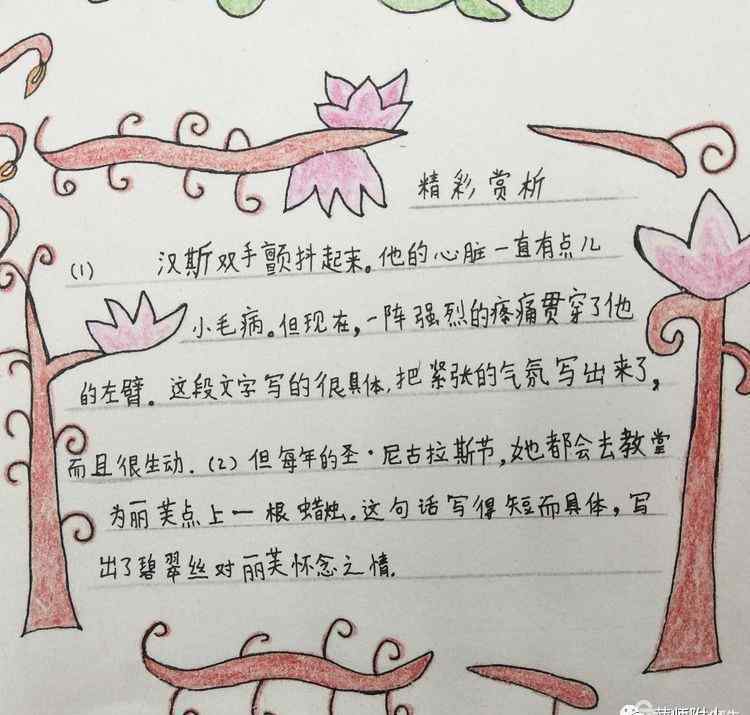 精彩赏析
(1) 汉斯双手颤抖起来。他的心脏一直有点儿
小毛病。但现在，一阵强烈的疼痛贯穿了他
的左臂。这段文字写的很具体，把紧张的气氛写出来了，
而且很生动.(2)但每年的圣·尼古拉斯节，她都会去教堂
为丽芙点上一根蜡烛.这句话写得短而具体，写
出了碧翠丝对丽芙怀念之情.